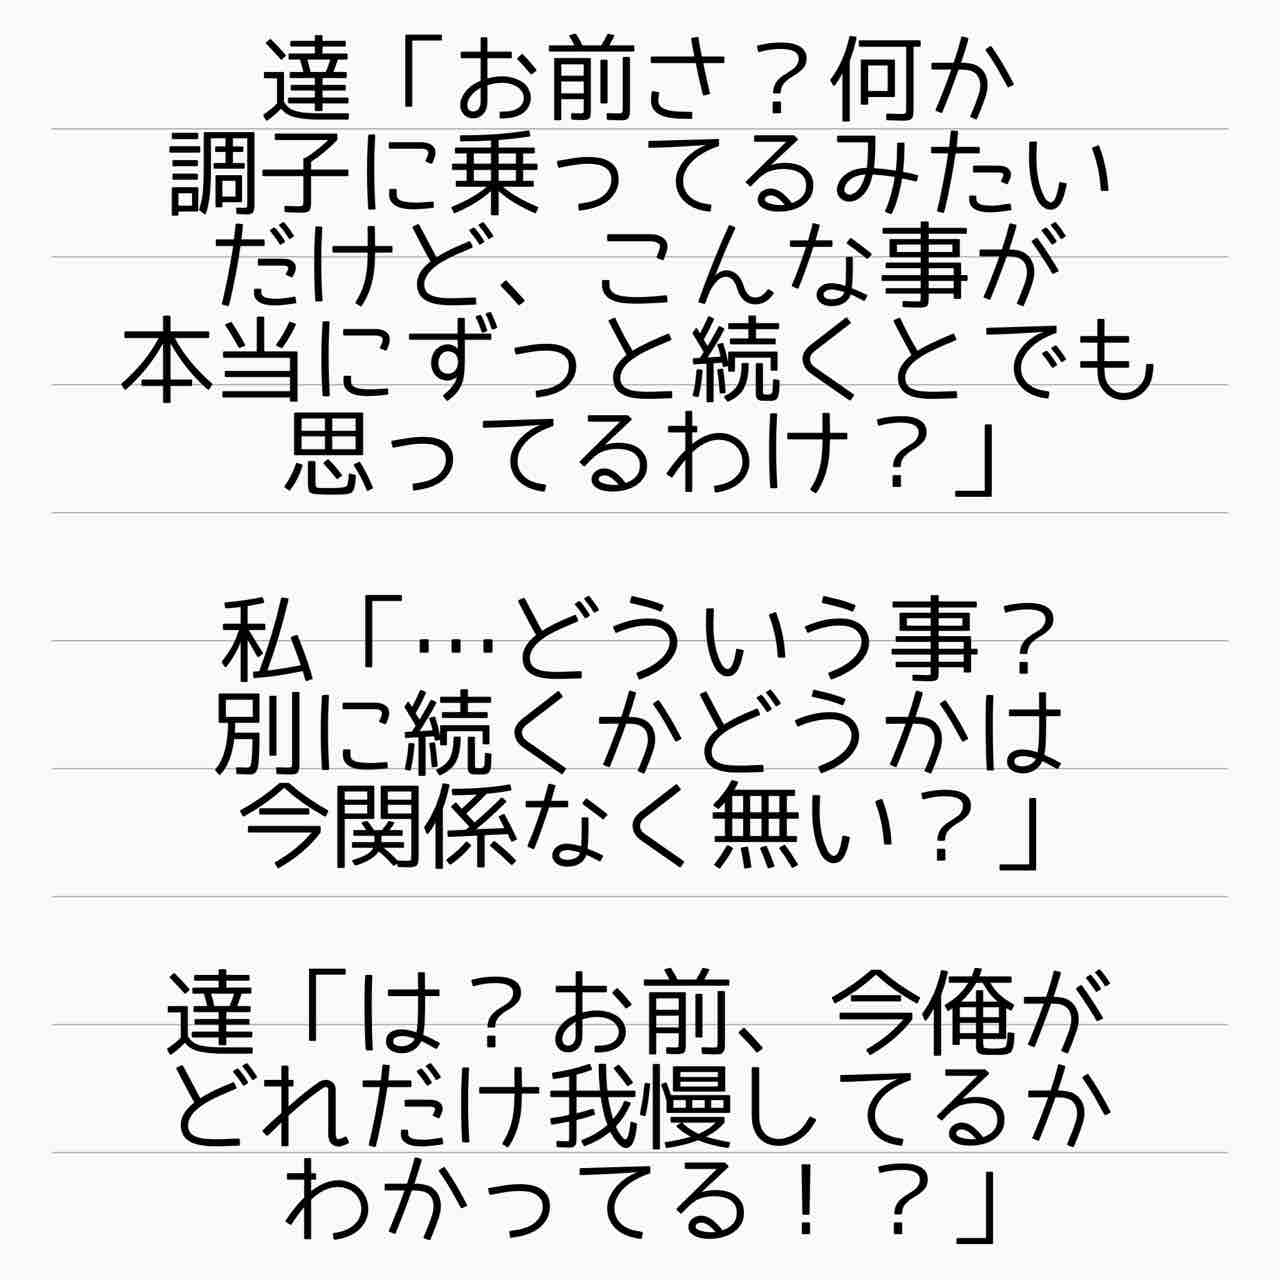 達「お前さ？何か
調子に乗ってるみたい
だけど、こんな事が
本当にずっと続くとでも
思ってるわけ？」
私「…どういう事？
別に続くかどうかは
今関係なく無い？」
達「は？お前、今俺が
どれだけ我慢してるか
わかってる！？」